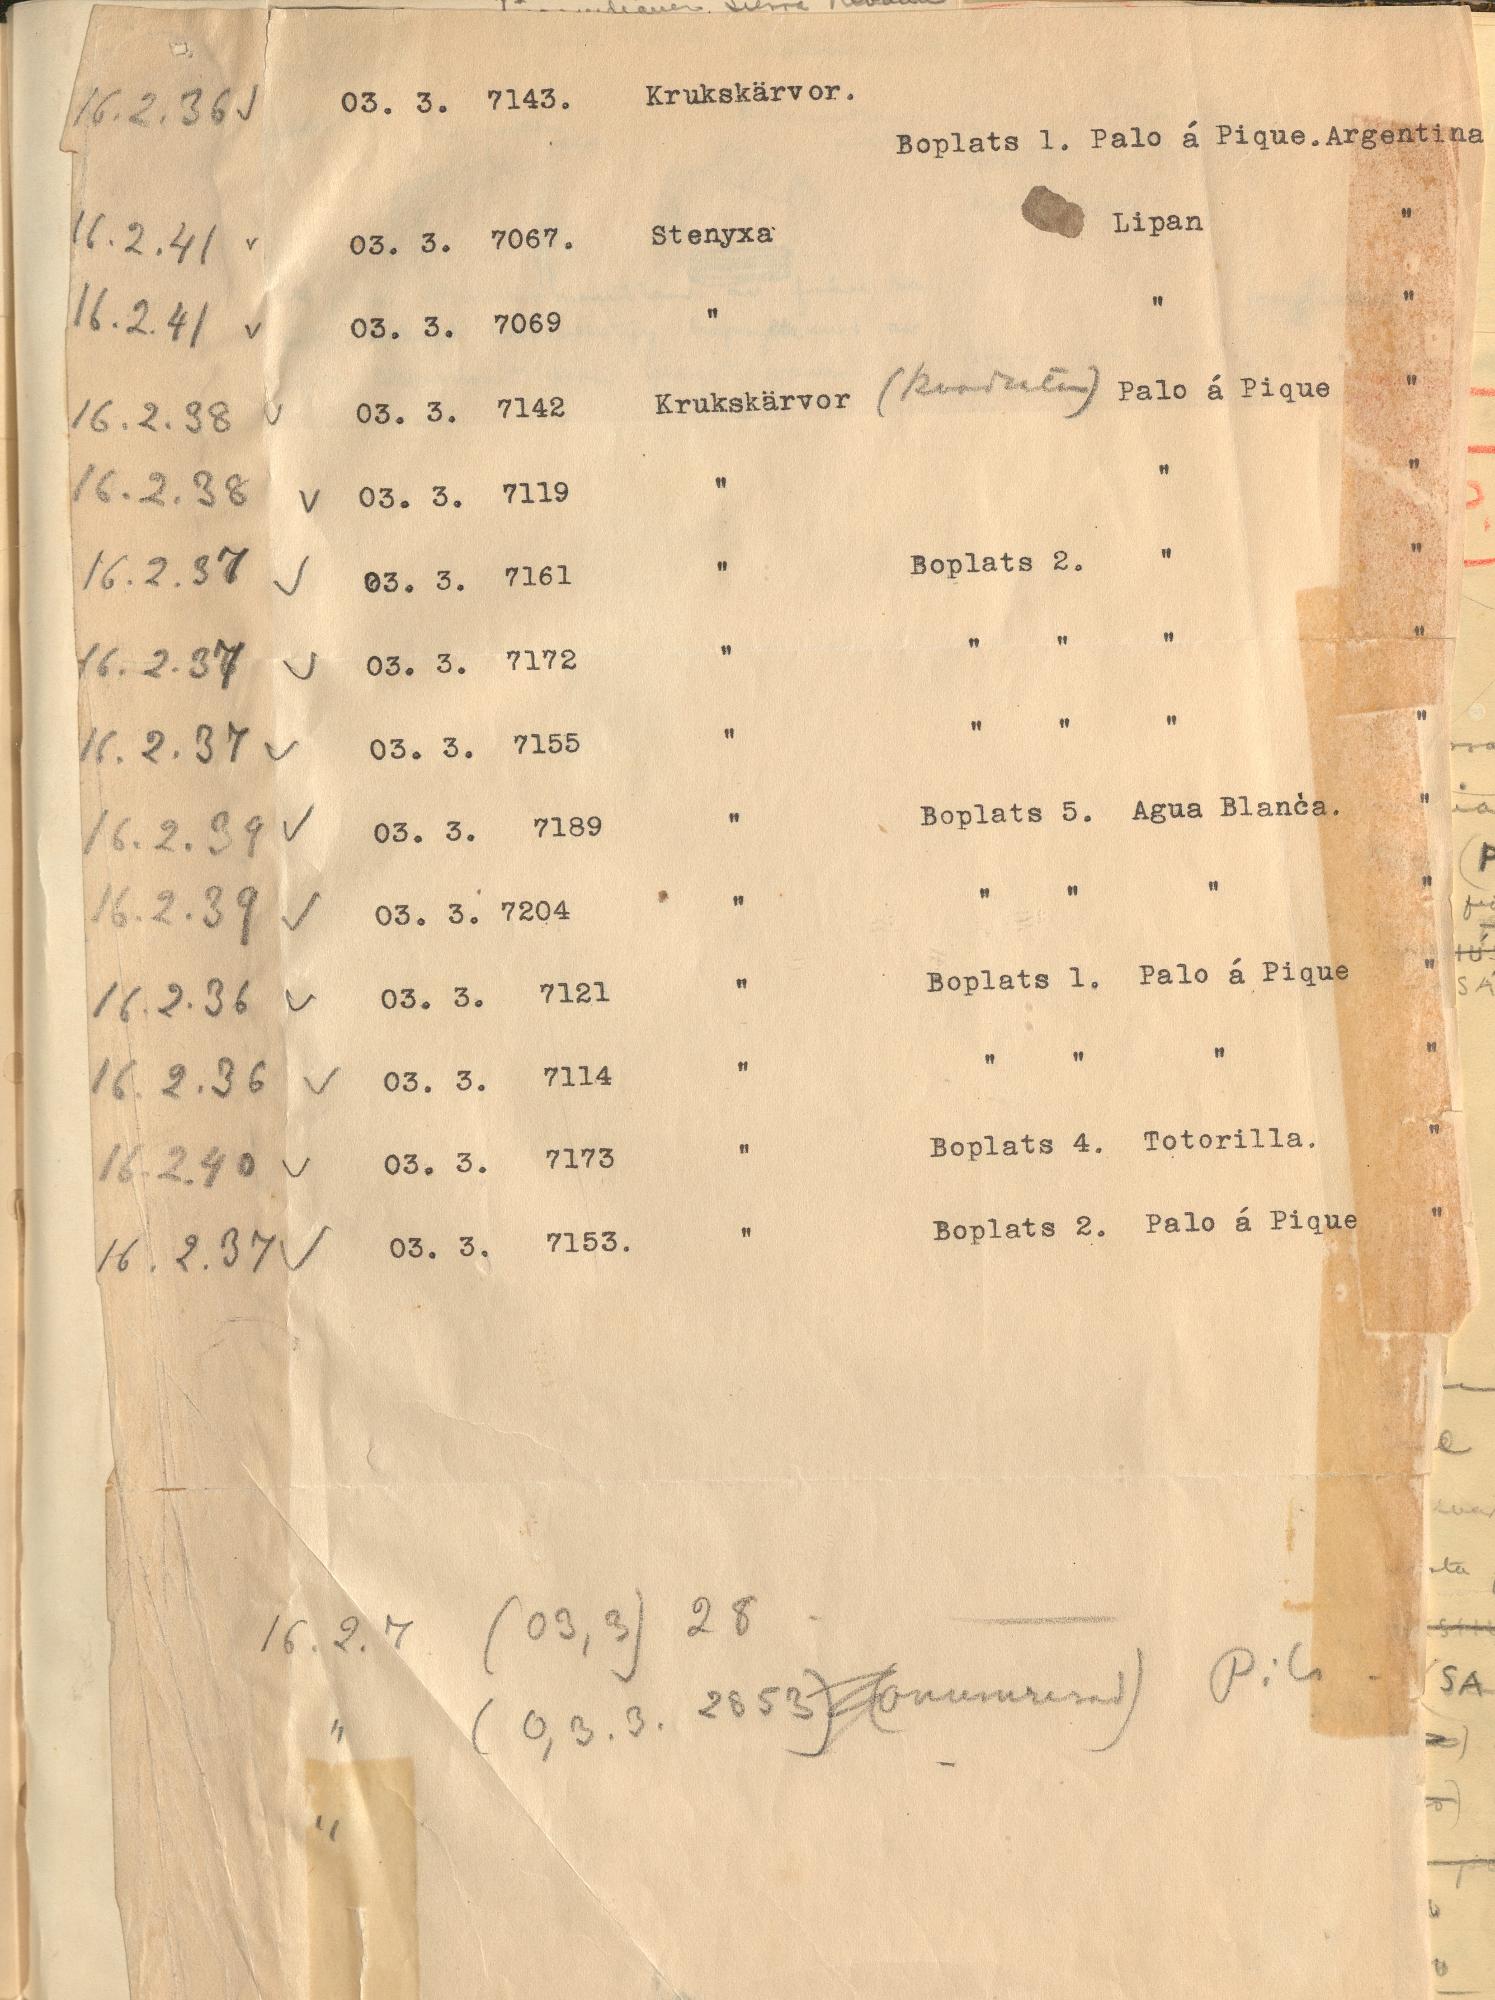 16.2.36 ✓ 03. 3. 7143. Krukskärvor.
Boplats 1. Palo á Pique. Argentina
16.2.41 v 03. 3. 7067. Stenyxa Lipan "
16.2.41 v 03. 3. 7069 " " "
16.2.38 v 03. 3. 7142 Krukskärvor Palo á Pique "
16.2.38 v 03. 3. 7119 " " "
16.2.37 ✓ 03. 3. 7161 " Boplats 2. " "
16.2.37 ✓ 03. 3. 7172 " " " " "
16.2.37 ✓ 03. 3. 7155 " " " " "
16.2.39 ✓ 03. 3. 7189 " Boplats 5. Agua Blanca. "
16.2.39 ✓ 03. 3. 7204 " " " " "
16.2.36 ✓ 03. 3. 7121 " Boplats 1. Palo á Pique "
16.2.36 ✓ 03. 3. 7114 " " " " "
16.2.40 ✓ 03. 3. 7173 " Boplats 4. Totorilla. "
16.2.37 ✓ 03. 3. 7153. " Boplats 2. Palo á Pique "
16.2.7 (03,3) 28 -
" (0,3.3. 2853) (onumrerad) Pil
"
SA